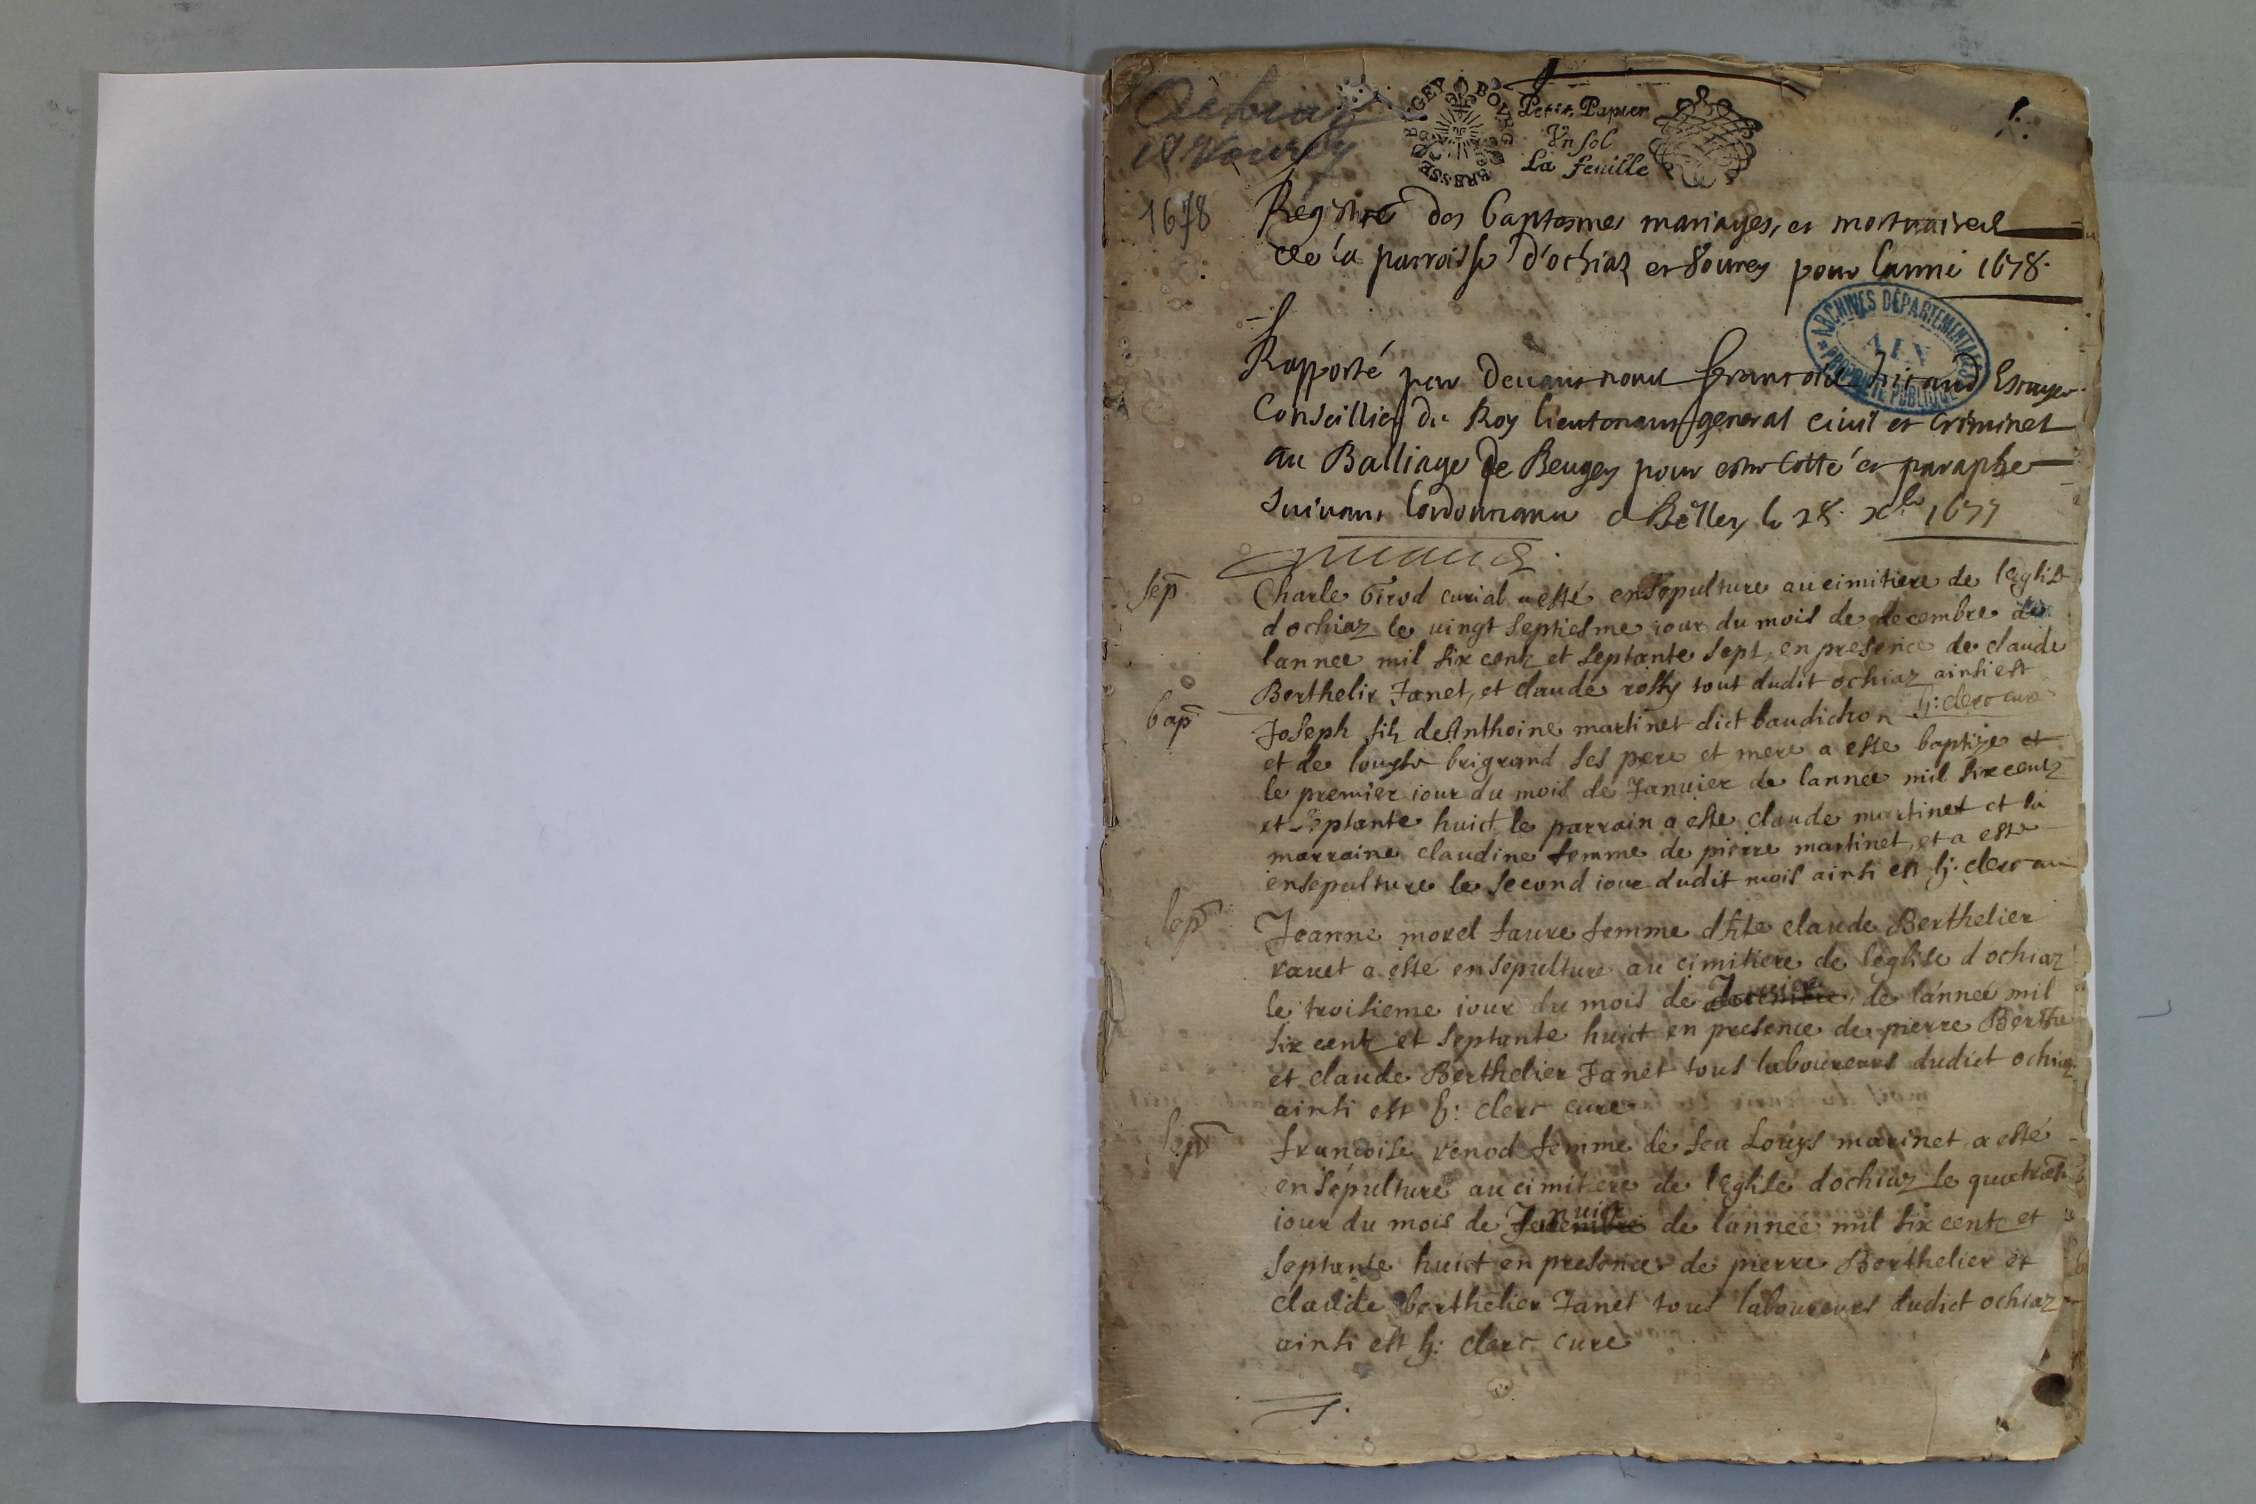 Ochiaz
et Vourey
BRESSE BUGEY BOURG
Petit Papier
Vn sol
La feuille
1.
1678
Registre des baptesmes mariages, et mortuaires
de la parroisse d'ochiaz et Vourey pour lanné 1678.
ARCHIVES DÉPARTEMENTALES
AIN
PROPRIÉTÉ PUBLIQUE
Rapporté par deuant nous francois Escuyer
Conseillier du Roy lieutenant general ciuil et criminel
au Balliage de Beugey pour estre cotté et paraphé
suiuant lordonnance a Belley le 28. xbre 1677
sep
Charle Girod curial a esté ensepulture au cimitiere de leglise
dochiaz le uingt septiesme iour du mois de decembre de
lannee mil six centz et septante sept, en presence de claude
Berthelir Janet, et claude rossy tout dudit ochiaz ainsi est
h: clerc cure
bap
Joseph filz de Anthoine martinet dict baudichon
et de louyse brigrand ses pere et mere a este baptize et
le premier iour du mois de Januier de lannee mil six centz
et septante huict le parrain a este claude martinet et la
marraine claudine femme de pierre martinet, et a este
ensepulture le second iour dudit mois ainsi est h: clerc cure
sep
Jeanne morel faure femme claude Berthelier
rauet a esté ensepulture au cimitiere de leglise dochiaz
le troisieme iour du mois de Januier de lánneé mil
six centz et septante huict en presence de pierre Berthe
et claude Berthelier Janet tous laboureurs dudict ochiaz
ainsi est h: clerc cure
sep
francoise renod femme de feu Louys marinet a esté
ensépulture au cimitiere de léglisé dochiaz le quatriesm
iour du mois de Januier de lánneé mil six centz et
septante huict en presence de pierre Berthelier et
claude berthelier Janet tous laboureurs dudict ochiaz
ainsi est h: clerc cure